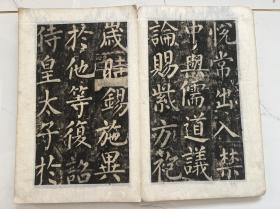 悦常出入禁
中與儒道議
論賜紫方袍
歲時錫施異
於他等復詔
侍皇太子於